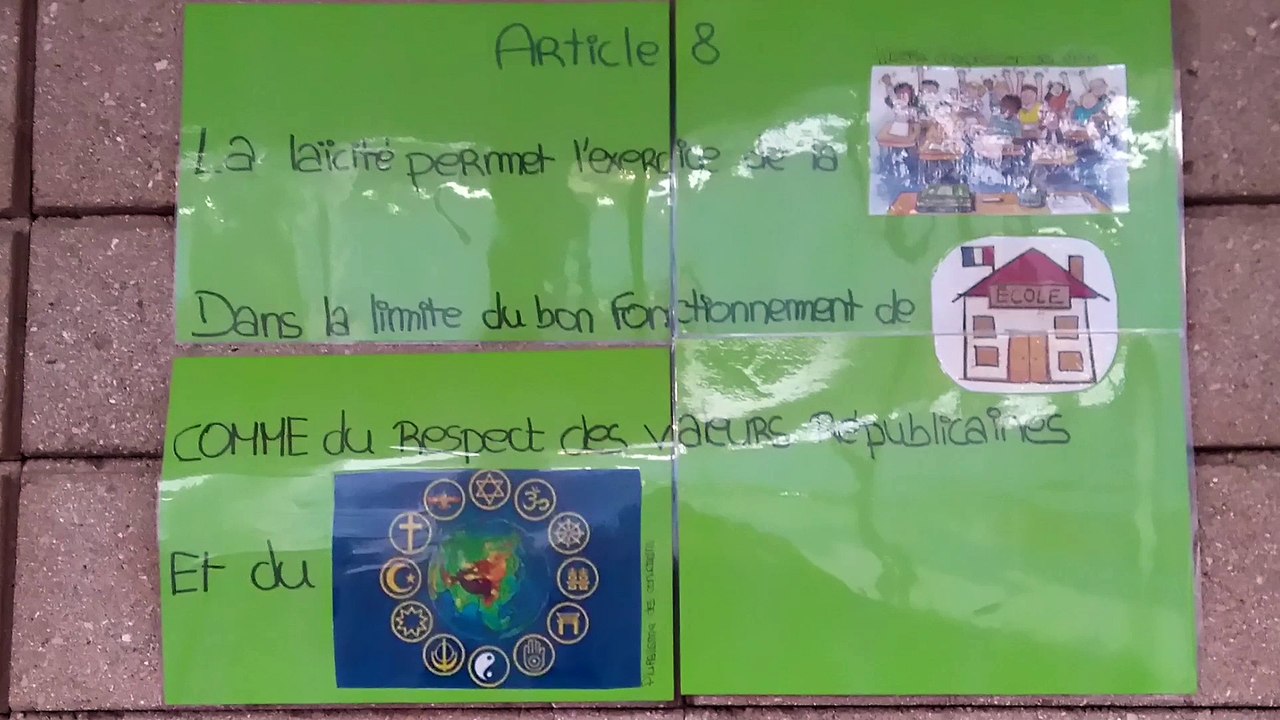 Article 8
La laïcité permet l'exercice de la
Dans la limite du bon fonctionnement de
ECOLE
COMME du Respect des valeurs Républicaines
Et du
Pluralisme des convictions